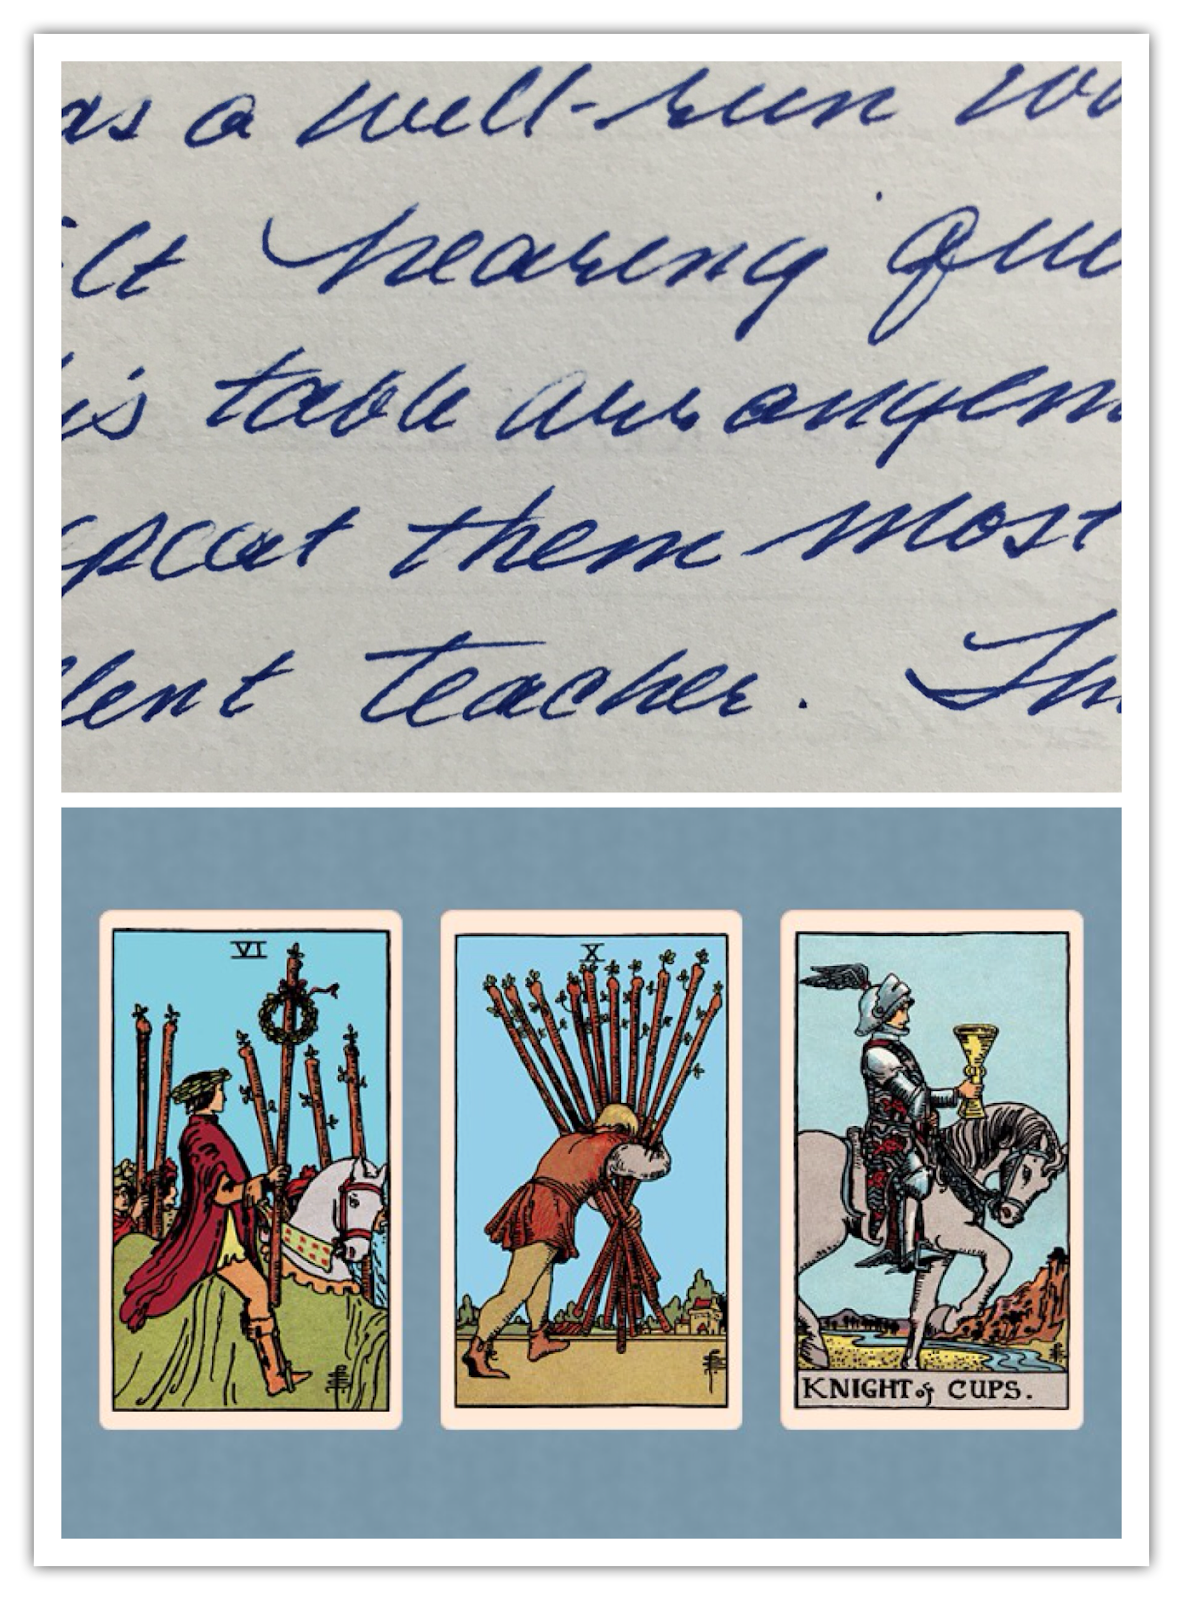 as a well-run wo
elt hearing que
is table arrangem
peat them most
llent teacher. Th
VI
X
KNIGHT of CUPS.